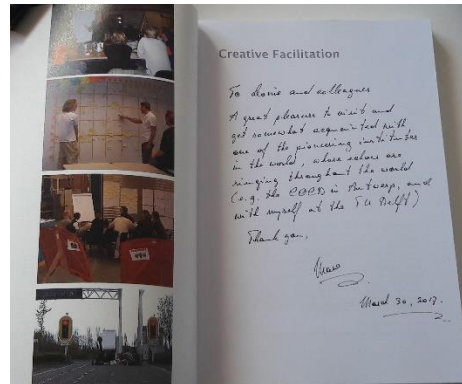 Creative Facilitation
To and colleagues
A great pleasure to visit and
get somewhat acquainted with
one of the pioneering institutes
in the world, whose echoes are
ringing throughout the world
(e.g. the in Antwerp, and
with myself at the TU Delft)
Thank you,
March 30, 2017.